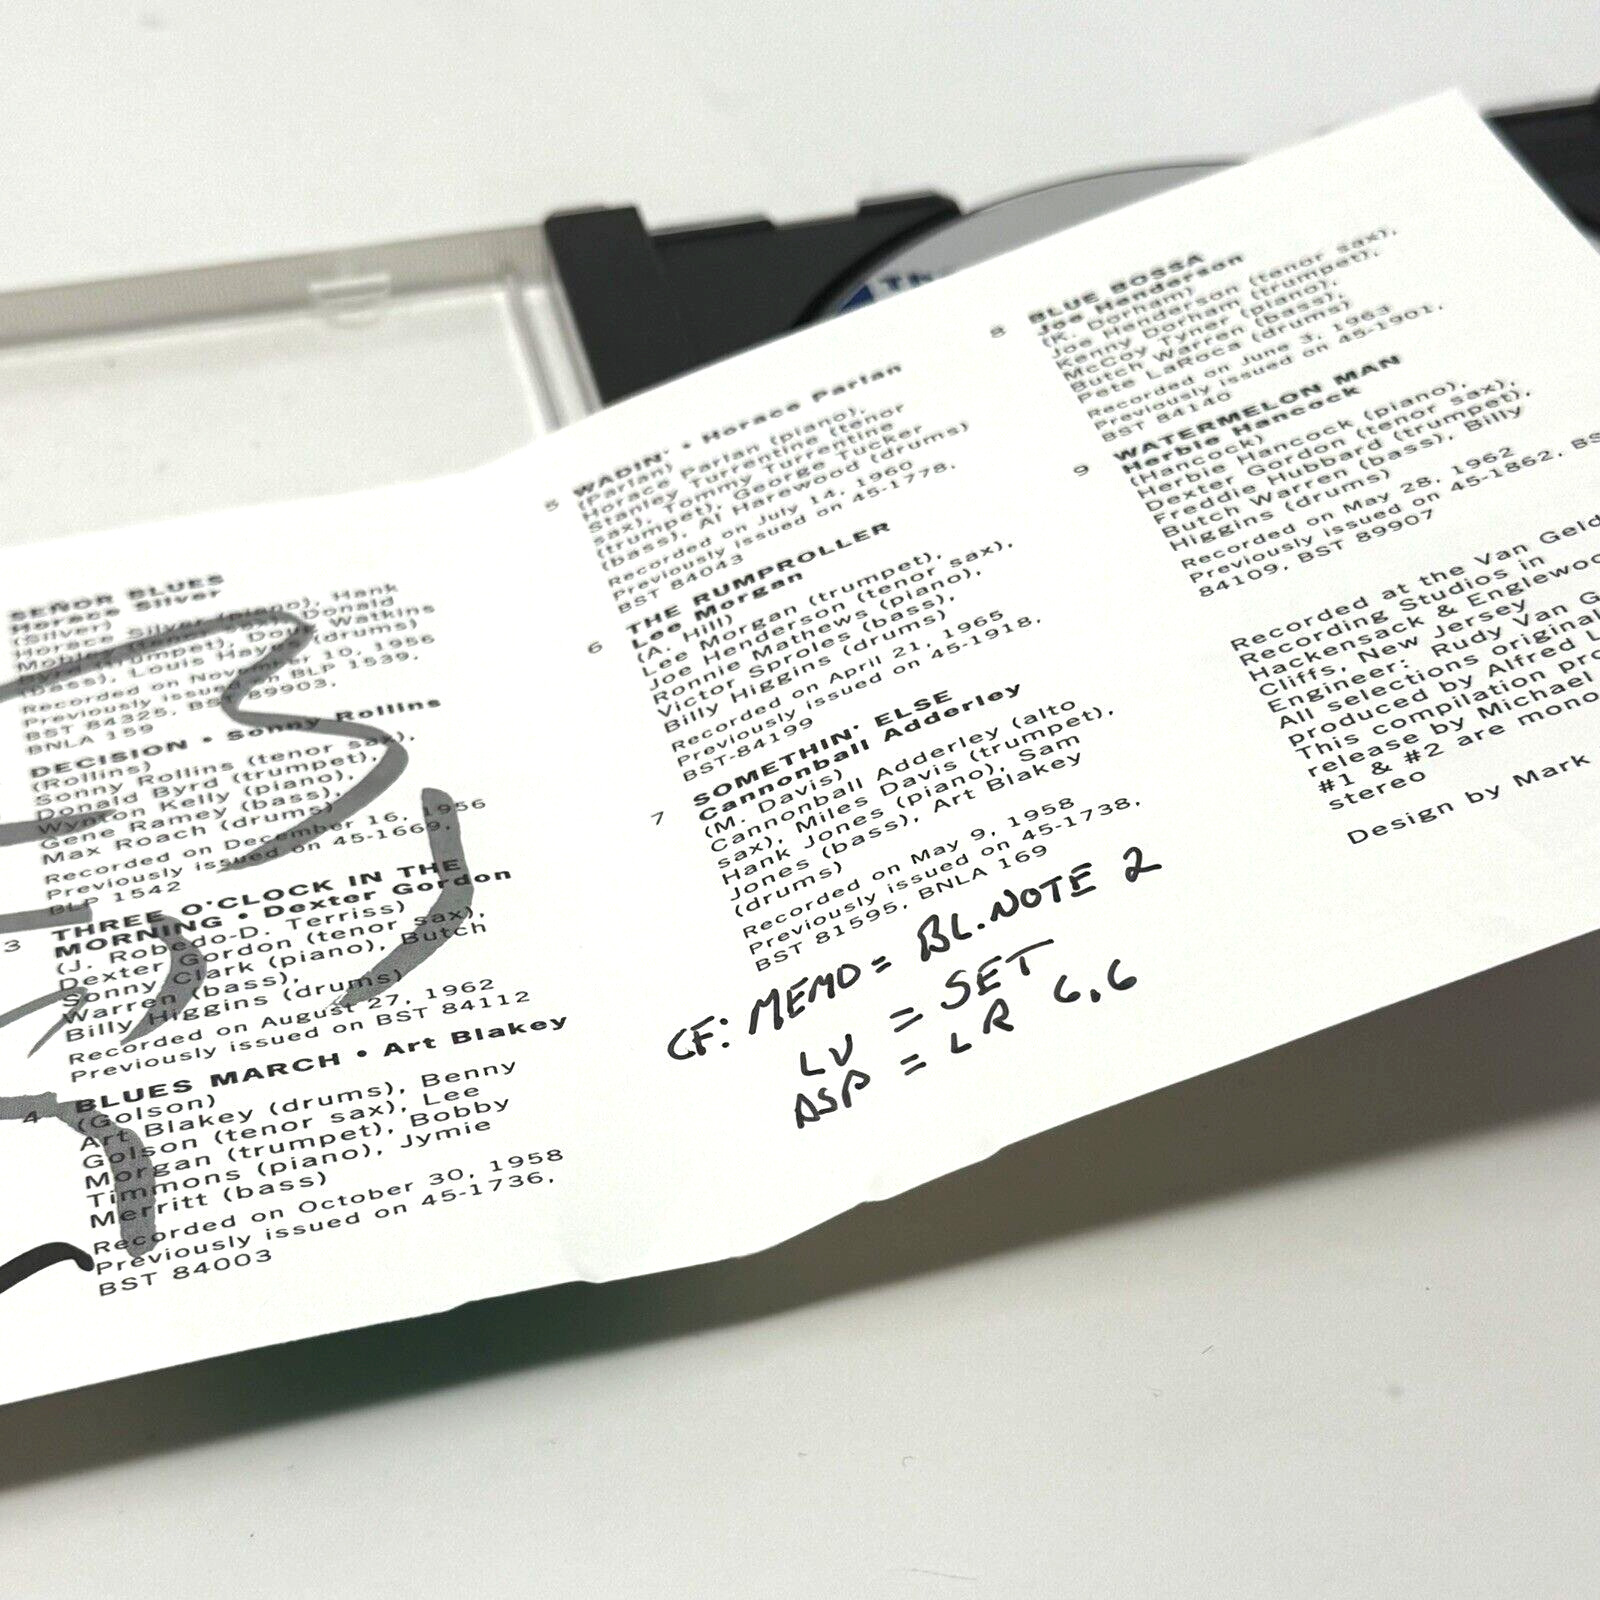 SEÑOR BLUES
Horace Silver
(Silver)
Horace Silver (piano), Hank
Mobley (tenor sax), Donald
Byrd (trumpet), Doug Watkins
(bass), Louis Hayes (drums)
Recorded on November 10, 1956
Previously issued on BLP 1539,
BST 84325, BST 89903,
BNLA 159
DECISION • Sonny Rollins
(Rollins)
Sonny Rollins (tenor sax),
Donald Byrd (trumpet),
Wynton Kelly (piano),
Gene Ramey (bass),
Max Roach (drums)
Recorded on December 16, 1956
Previously issued on 45-1669,
BLP 1542
3 THREE O'CLOCK IN THE
MORNING • Dexter Gordon
(J. Robedo-D. Terriss)
Dexter Gordon (tenor sax),
Sonny Clark (piano), Butch
Warren (bass),
Billy Higgins (drums)
Recorded on August 27, 1962
Previously issued on BST 84112
4 BLUES MARCH • Art Blakey
(Golson)
Art Blakey (drums), Benny
Golson (tenor sax), Lee
Morgan (trumpet), Bobby
Timmons (piano), Jymie
Merritt (bass)
Recorded on October 30, 1958
Previously issued on 45-1736,
BST 84003
5 WADIN' • Horace Parlan
(Parlan)
Horace Parlan (piano),
Stanley Turrentine (tenor
sax), Tommy Turrentine
(trumpet), George Tucker
(bass), Al Harewood (drums)
Recorded on July 14, 1960
Previously issued on 45-1778,
BST 84043
6 THE RUMPROLLER
Lee Morgan
(A. Hill)
Lee Morgan (trumpet),
Joe Henderson (tenor sax),
Ronnie Mathews (piano),
Victor Sproles (bass),
Billy Higgins (drums)
Recorded on April 21, 1965
Previously issued on 45-1918,
BST-84199
7 SOMETHIN' ELSE
Cannonball Adderley
(M. Davis)
Cannonball Adderley (alto
sax), Miles Davis (trumpet),
Hank Jones (piano), Sam
Jones (bass), Art Blakey
(drums)
Recorded on May 9, 1958
Previously issued on 45-1738,
BST 81595, BNLA 169
CF: MEMO = BL.NOTE 2
LV = SET
ASP = LR 6,6
8 BLUE BOSSA
Joe Henderson
(K. Dorham)
Joe Henderson (tenor sax),
Kenny Dorham (trumpet),
McCoy Tyner (piano),
Butch Warren (bass),
Pete LaRoca (drums)
Recorded on June 3, 1963
Previously issued on 45-1901,
BST 84140
9 WATERMELON MAN
Herbie Hancock
(Hancock)
Herbie Hancock (piano),
Dexter Gordon (tenor sax),
Freddie Hubbard (trumpet),
Butch Warren (bass), Billy
Higgins (drums)
Recorded on May 28, 1962
Previously issued on 45-1862, BS
84109, BST 89907
Recorded at the Van Geld
Recording Studios in
Hackensack & Englewoo
Cliffs, New Jersey
Engineer: Rudy Van G
All selections original
produced by Alfred L
This compilation pro
release by Michael
#1 & #2 are mono
stereo
Design by Mark